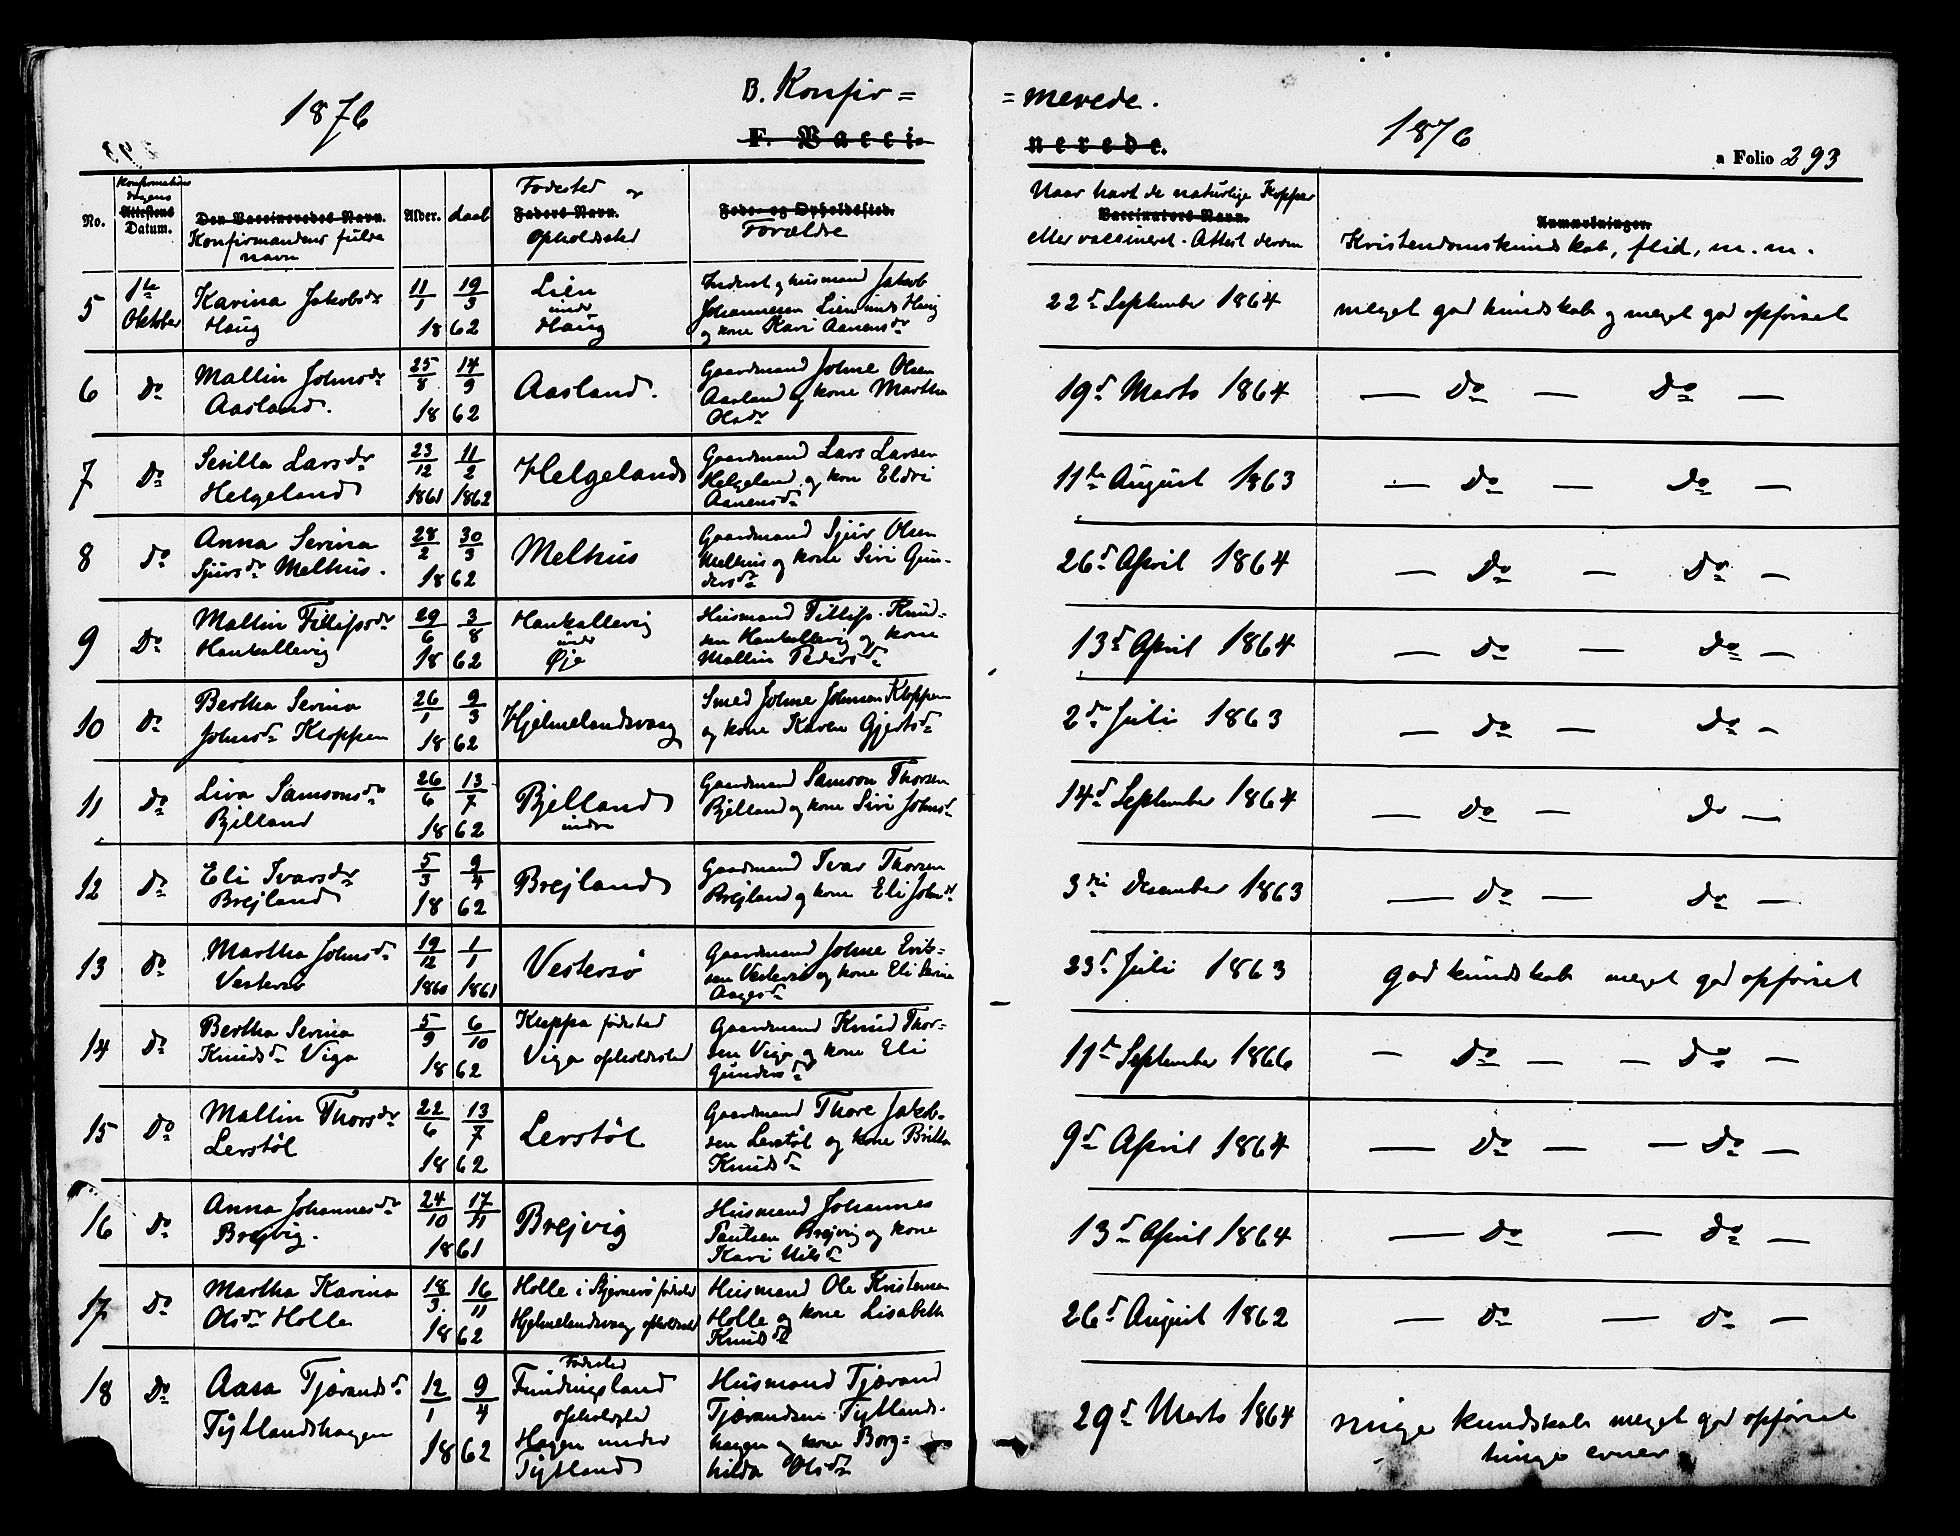 1876
B. Konfir =
F. Vacci-
= merede.
nerede.
1876
a Folio 293
No.
Konfirmations dagens
Attestens
Datum.
Den Vaccineredes Navn.
Konfirmandens fulde
navn
Alder.
daab
Fødested og
Faders Navn.
Opholdssted
Føde- og Opholdssted.
Forældre
Naar havt de naturlige Kopper
Vaccinators Navn.
eller vaccineret. Attest derom
Anmærkninger.
Kristendomskundskab, flid, m. m.
5
1ste
Oktober
Karina Jakobsdr
Haug
11/1 19/3
1862
Lien
under
Haug
Inderst og husmand Jakob
Johannesen Lien under Haug
og kone Kari Aanensdr
22d September 1864
meget god kundskab og meget god opførsel
6
Do
Mallin Johnsdr
Aasland.
25/8 14/9
1862
Aasland.
Gaardmand Johne Olsen
Aasland og kone Martha
Olsdr
19d Marts 1864
— Do — Do —
7
Do
Sesilla Larsdr
Helgeland
23/12 11/2
1861 1862
Helgeland
Gaardmand Lars Larsen
Helgeland og kone Eldri
Aanensdr
11te August 1863
— Do — Do —
8
Do
Anna Serina
Sjursdr Melhus.
28/2 30/3
1862
Melhus
Gaardmand Sjur Olsen
Melhus og kone Siri Gun-
dersdr
26d April 1864
— Do — Do —
9
Do
Mallin Fillipsdr
Hankallevig
29/6 3/8
1862
Hankallevig
under
Øje
Husmand Fillip Knud-
sen Hankallevig og kone
Mallin Pedersdr
13d April 1864
— Do — Do —
10
Do
Bertha Serina
Johnsdr Kloppen
26/1 9/3
1862
Hjelmelandsvaag
Smed Johne Johnsen Kloppen
og kone Karen Gjertsdr
2den Juli 1863
— Do — Do —
11
Do
Liva Samsonsdr
Bjelland
26/6 13/7
1862
Bjelland
indre
Gaardmand Samson Thorsen
Bjelland og kone Siri Johnsdr
14d September 1864
— Do — Do —
12
Do
Eli Ivarsdr
Brejland
5/3 9/4
1862
Brejland
Gaardmand Ivar Thorsen
Brejland og kone Eli Johnsdr
3die Desember 1863
— Do — Do —
13
Do
Martha Johnsdr
Vestersø
19/12 1/1
1860 1861
Vestersø
Gaardmand Johne Erik-
sen Vestersø og kone Eli Serina
Aagesdr
23d Juli 1863
god kundskab meget god opførsel
14
Do
Bertha Serina
Knudsdr Viga
5/9 6/10
1862
Kleppa fødested
Viga opholdssted
Gaardmand Knud Thor-
sen Viga og kone Eli
Gundersdr
11d September 1866
— Do — — Do —
15
Do
Mallin Thorsdr
Lerstøl
22/6 13/7
1862
Lerstøl
Gaardmand Thore Jakob-
sen Lerstøl og kone Britha
Knudsdr
9d April 1864
— Do — — Do —
16
Do
Anna Johannesdr
Brejvig.
24/10 17/11
1861
Brejvig
Husmand Johannes
Paulsen Brejvig og kone
Kari Nilsdr
13d April 1864
— Do — Do —
17
Do
Martha Karina
Olsdr Holle
18/3. 16/11
1862
Holle i Bjernerø fødested
Hjelmelandsvaag opholdssted
Husmand Ole Kristensen
Holle og kone Lisabeth
Knudsdr
26d August 1862
— Do — Do —
18
Do
Aasa Tjærandsdr
Tytlandshagen
12/1 9/4
1862
Fødested
Fundingsland
opholdssted
Hagen under
Tytland
Husmand Tjærand
Tjærandsen Tytlands-
hagen og kone Borg=
hilda Olsdr
29d Marts 1864
ringe kundskab meget god opførsel
ringe evner